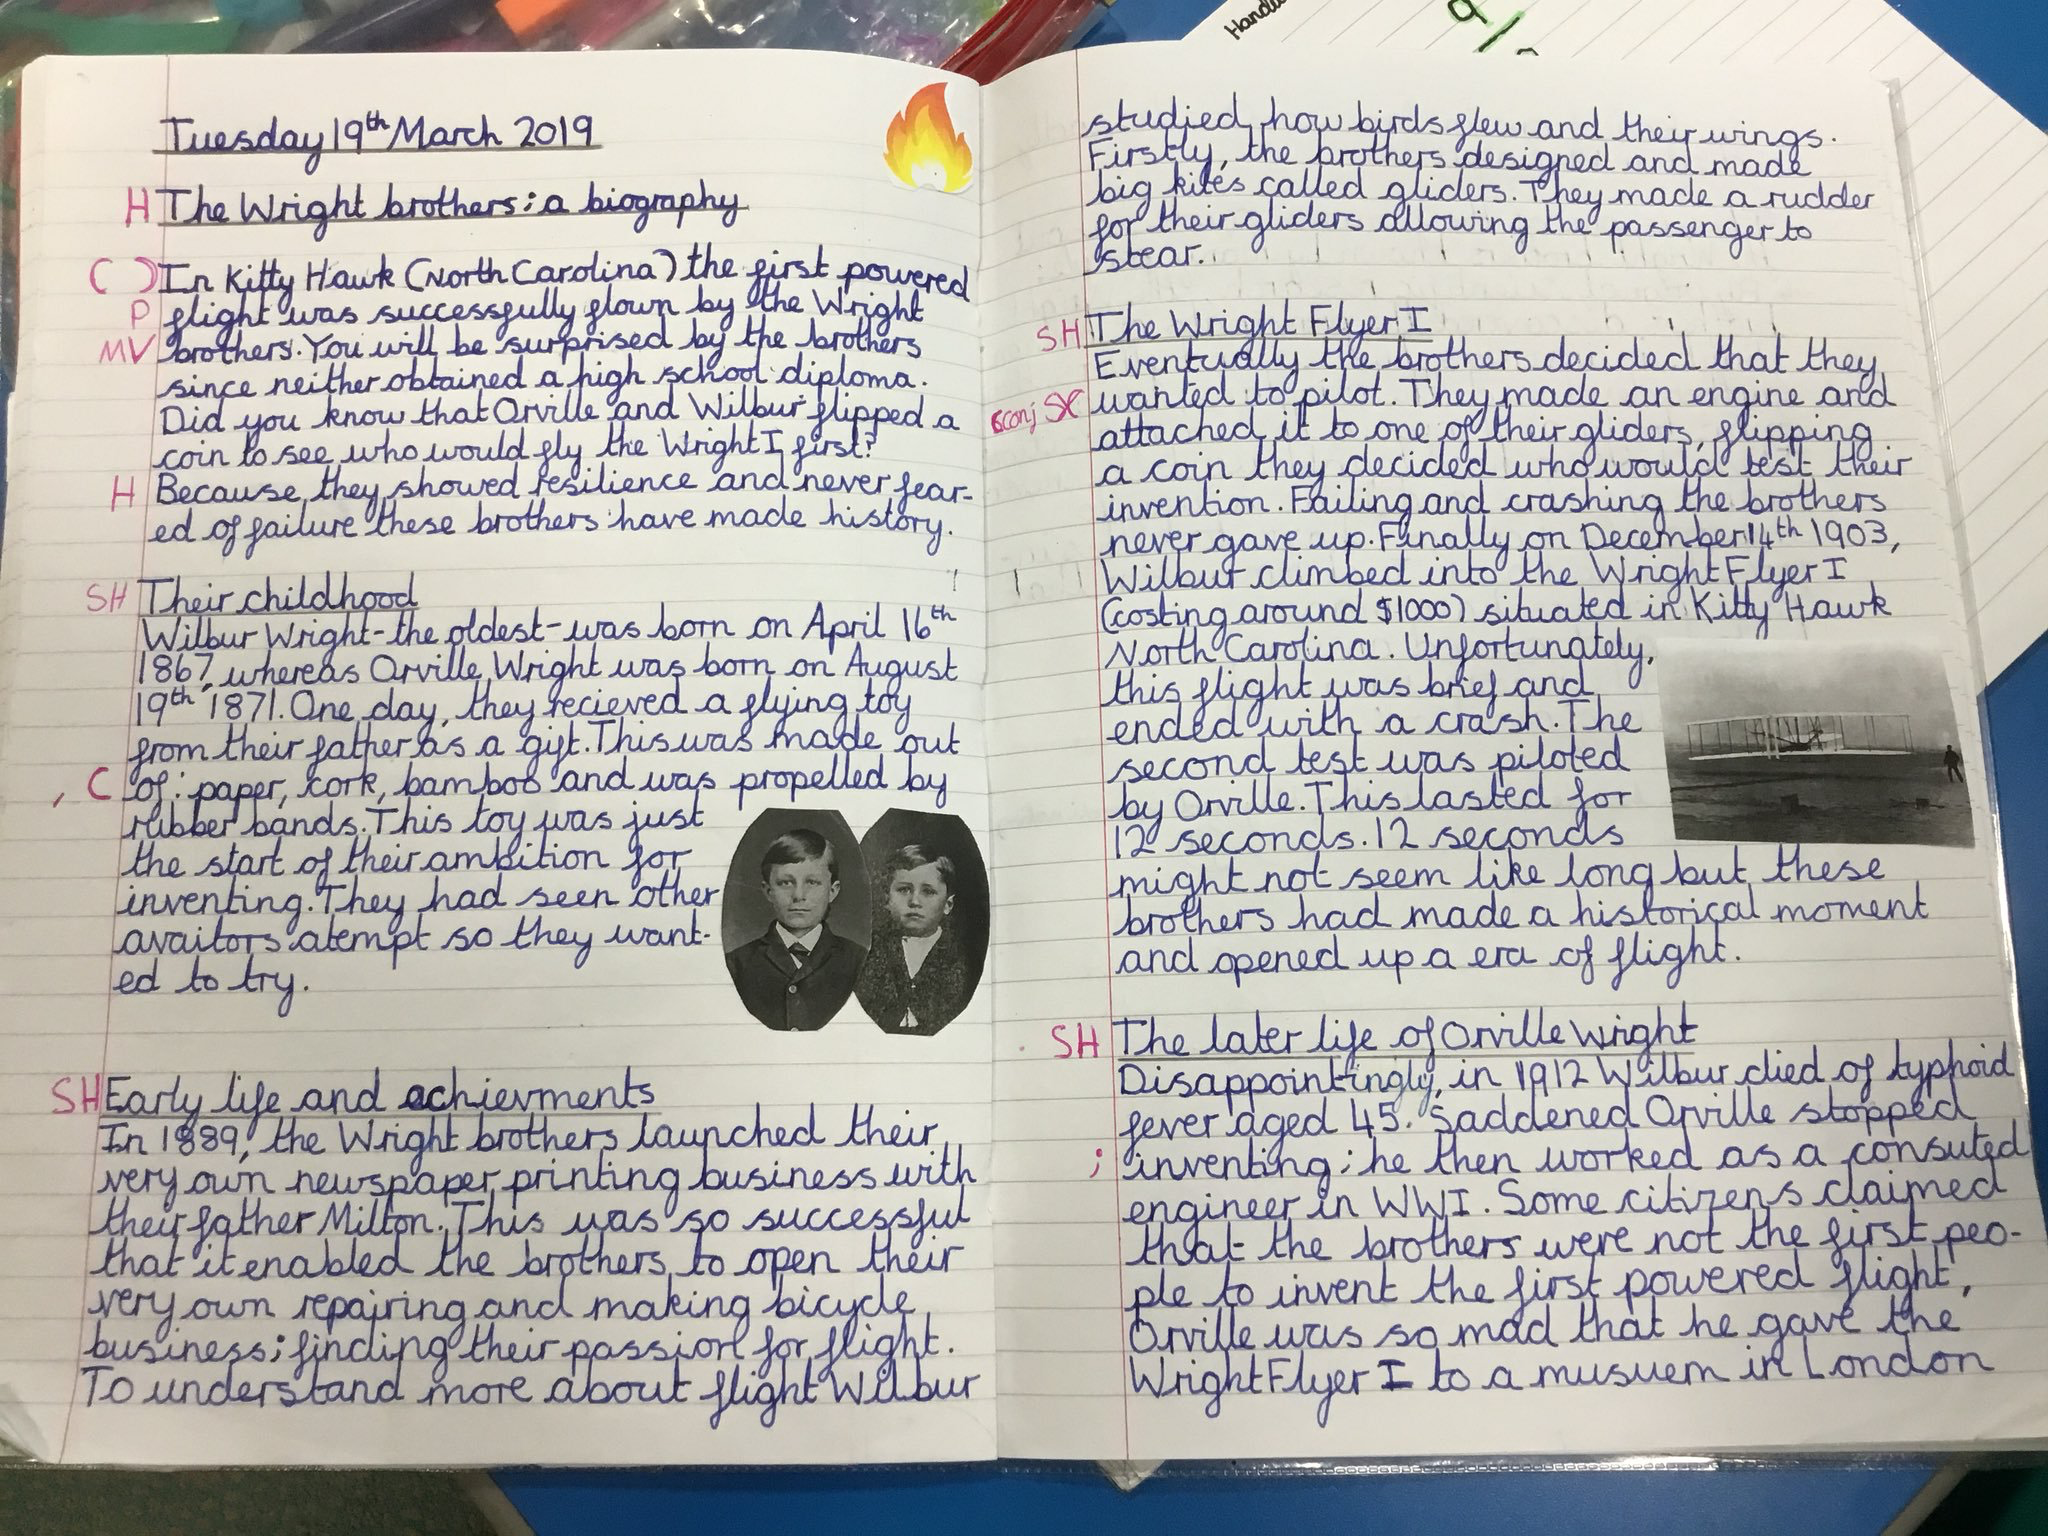 Handw
9/2
Tuesday 19th March 2019
H The Wright brothers: a biography
( ) In Kitty Hawk (North Carolina) the first powered
P flight was successfully flown by the Wright
MV brothers. You will be surprised by the brothers
since neither obtained a high school diploma.
Did you know that Orville and Wilbur flipped a
coin to see who would fly the Wright I first?
H Because they showed resilience and never fear-
ed of failure these brothers have made history.
SH Their childhood
Wilbur Wright-the oldest-was born on April 16th
1867, whereas Orville Wright was born on August
19th 1871. One day, they recieved a flying toy
from their father as a gift. This was made out
, C of: paper, cork, bamboo and was propelled by
rubber bands. This toy was just
the start of their ambition for
inventing. They had seen other
avaitors atempt so they want-
ed to try.
SH Early life and achievments
In 1889, the Wright brothers launched their
very own newspaper printing business with
their father Milton. This was so successful
that it enabled the brothers to open their
very own repairing and making bicycle
business; finding their passion for flight.
To understand more about flight Wilbur
studied how birds flew and their wings.
Firstly, the brothers designed and made
big kites called gliders. They made a rudder
for their gliders allowing the passenger to
stear.
SH The Wright Flyer I
Eventually the brothers decided that they
sconj SC wanted to pilot. They made an engine and
attached it to one of their gliders, flipping
a coin they decided who would test their
invention. Failing and crashing the brothers
never gave up. Finally on December 14th 1903,
Wilbur climbed into the Wright Flyer I
(costing around $1000) situated in Kitty Hawk
North Carolina. Unfortunately,
this flight was brief and
ended with a crash. The
second test was piloted
by Orville. This lasted for
12 seconds. 12 seconds
might not seem like long but these
brothers had made a historical moment
and opened up a era of flight.
SH The later life of Orville Wright
Disappointingly, in 1912 Wilbur died of typhoid
fever aged 45. Saddened Orville stopped
; inventing; he then worked as a consuted
engineer in WWI. Some citizens claimed
that the brothers were not the first peo-
ple to invent the first powered flight,
Orville was so mad that he gave the
Wright Flyer I to a musuem in London